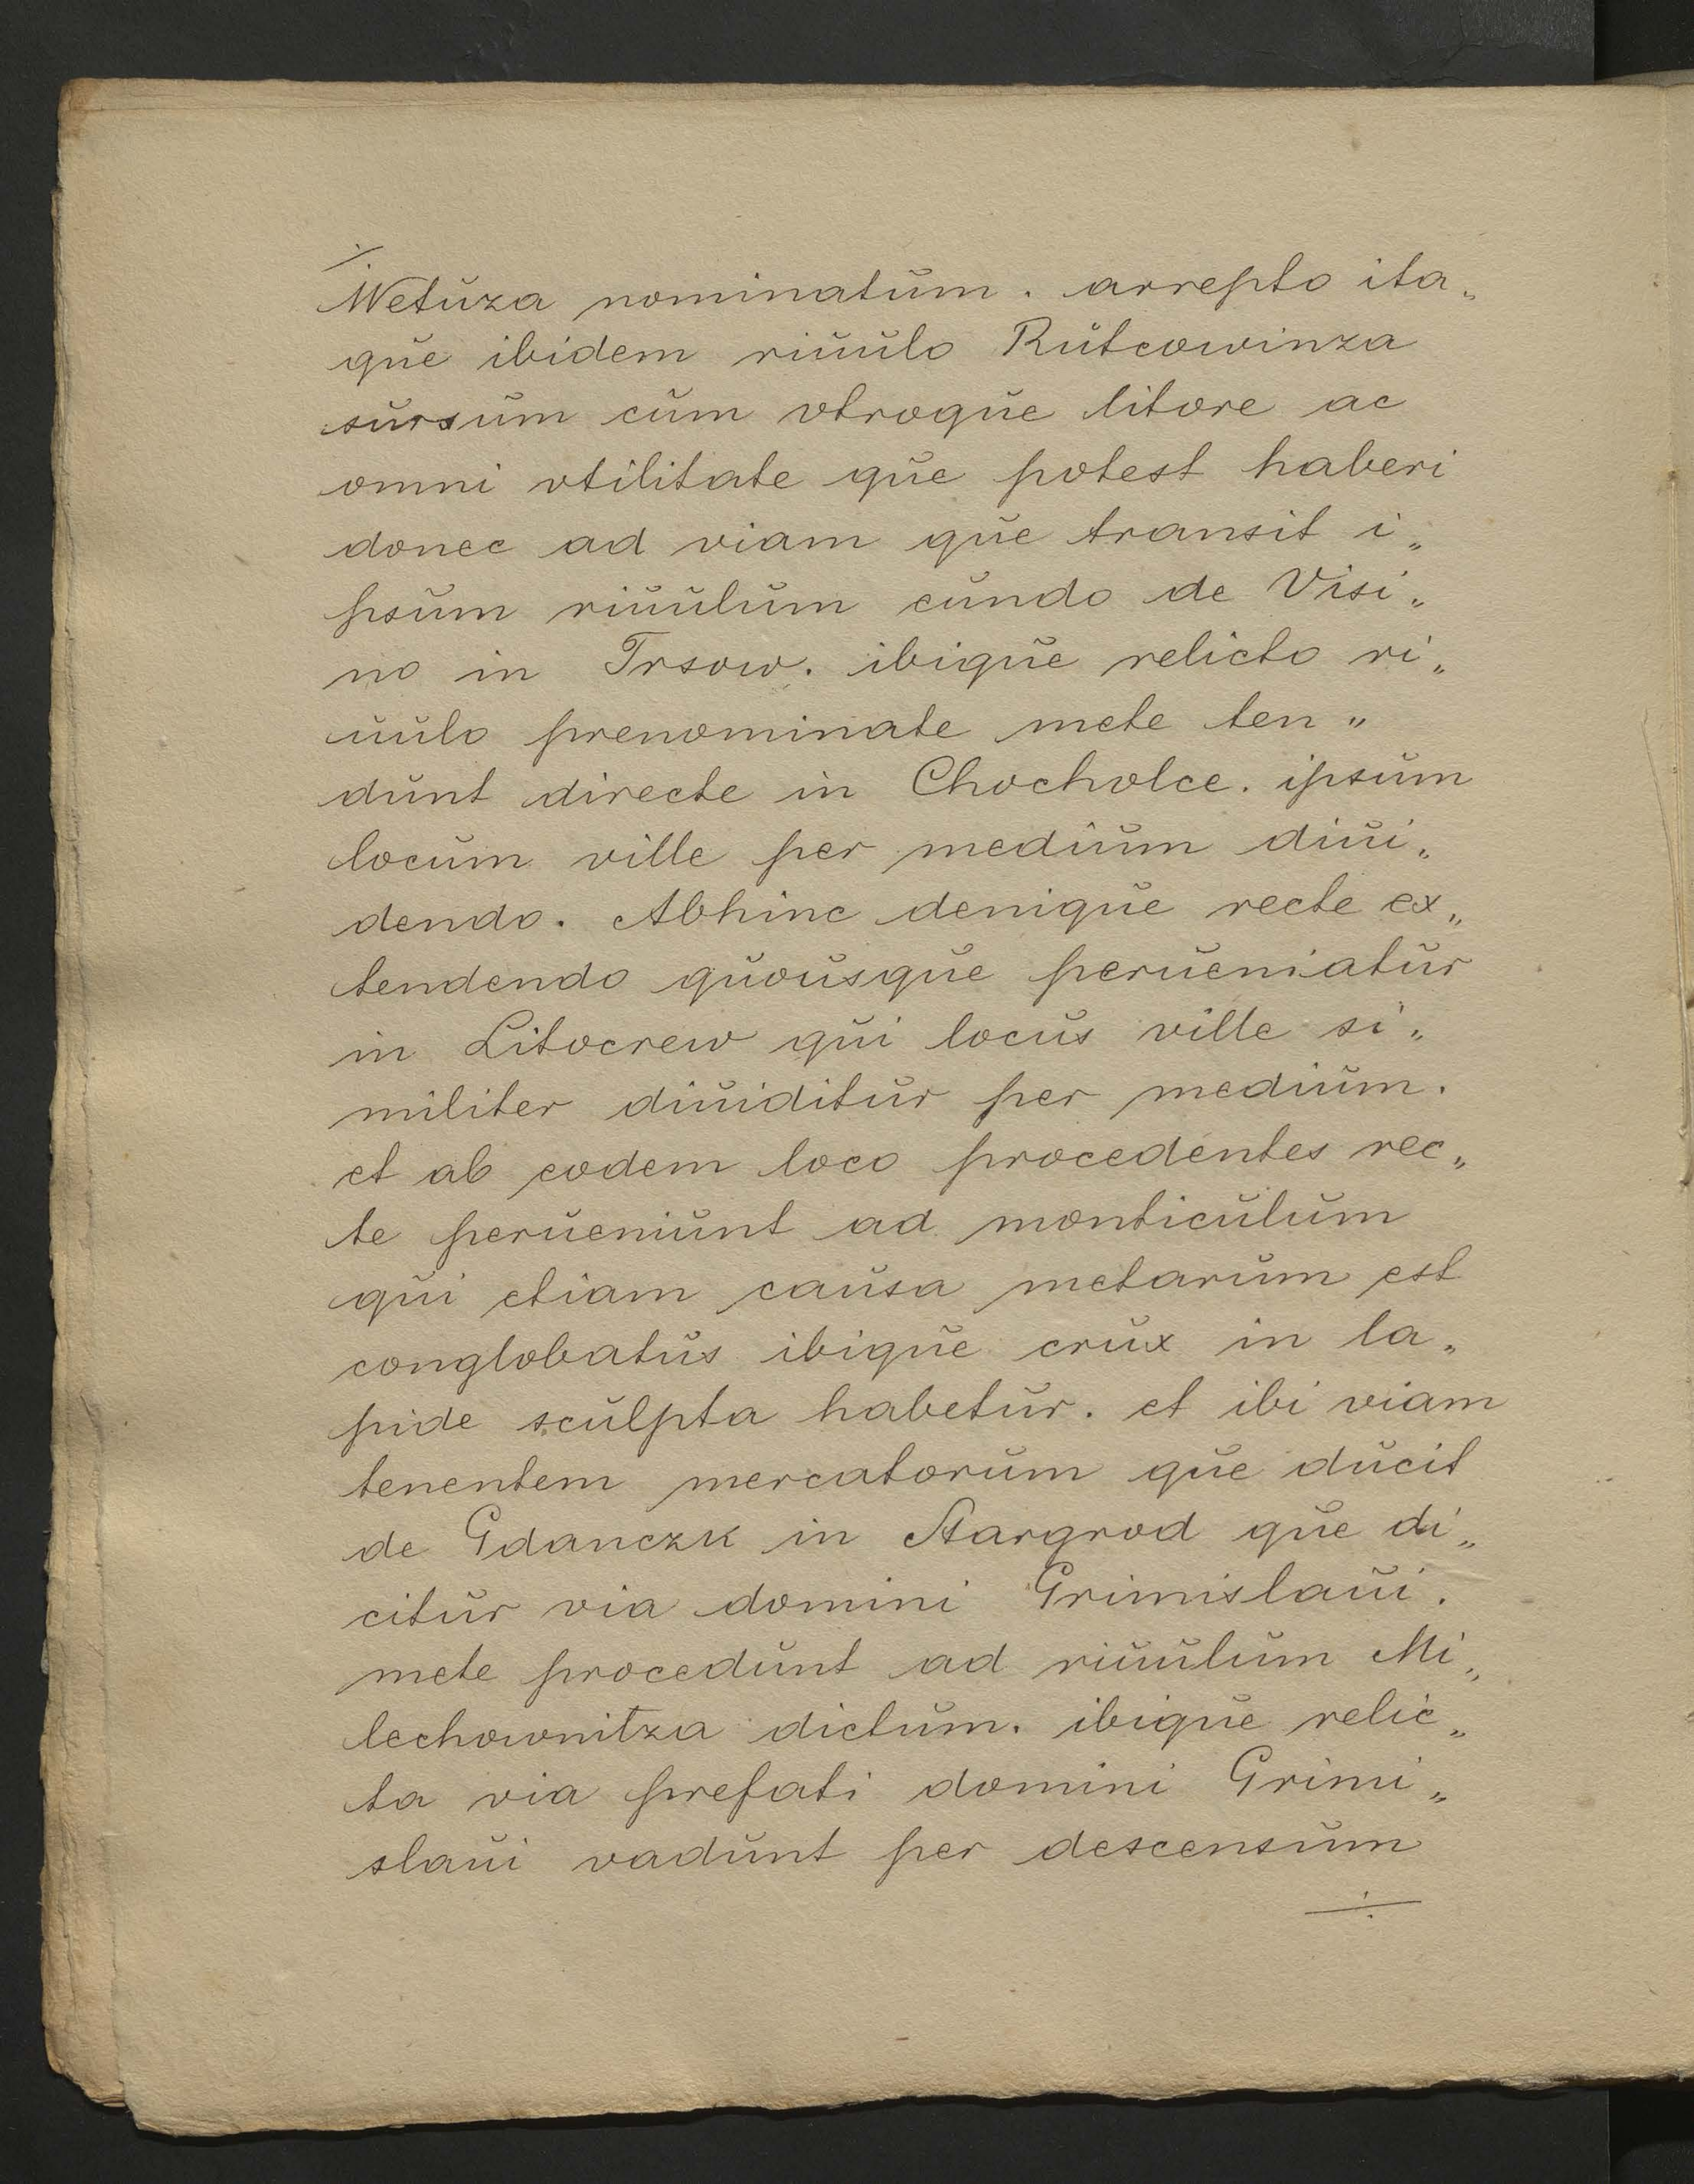 Wetuza nominatum. arrepto ita„
que ibidem riuulo Rutcowinza
sursum cum vtroque litore ac
omni vtilitate que potest haberi
donec ad viam que transit i„
psum riuulum eundo de Visi„
no in Trsow. ibique relicto ri„
uulo prenominate mete ten„
dunt directe in Chocholce. ipsum
locum ville per medium diui„
dendo. Abhinc denique recte ex„
tendendo quousque perueniatur
in Litocrew qui locus ville si„
militer diuiditur per medium.
et ab eodem loco procedentes rec„
te perueniunt ad monticulum
qui etiam causa metarum est
conglobatus ibique crux in la„
pide sculpta habetur. et ibi viam
tenentem mercatorum que ducit
de Gdanczk in Stargrod que di„
citur via domini Grimislaui.
mete procedunt ad riuulum Mi„
lechownitza dictum. ibique relic„
ta via prefati domini Grimi„
slaui vadunt per descensum